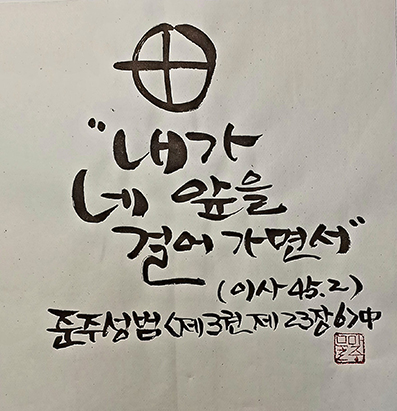 "내가
네 앞을
걸어 가면서"
(이사 45.2)
준주성범 <제3권 제23장6>中